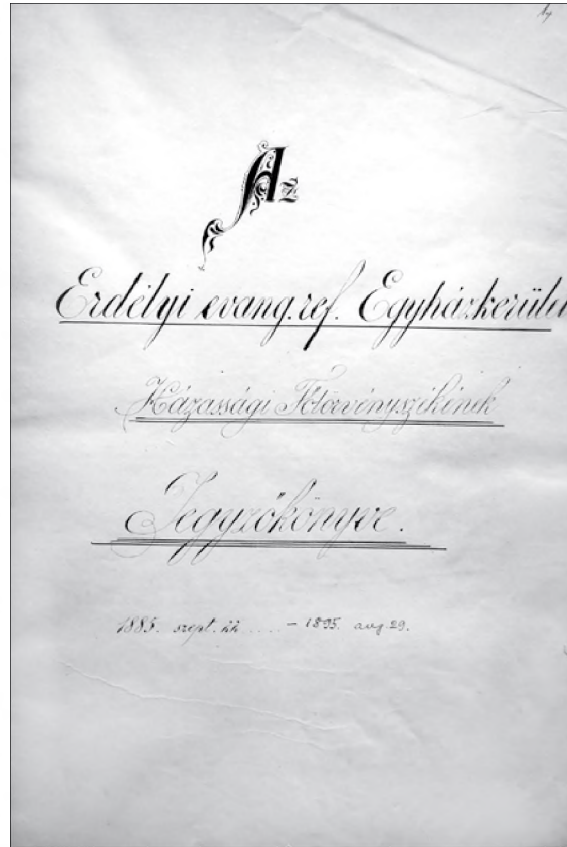 Az
Erdélyi evang. ref. Egyházkerület
Házassági Főtörvényszékének
Jegyzőkönyve.
1885. szept. 22 .... - 1895. aug. 29.